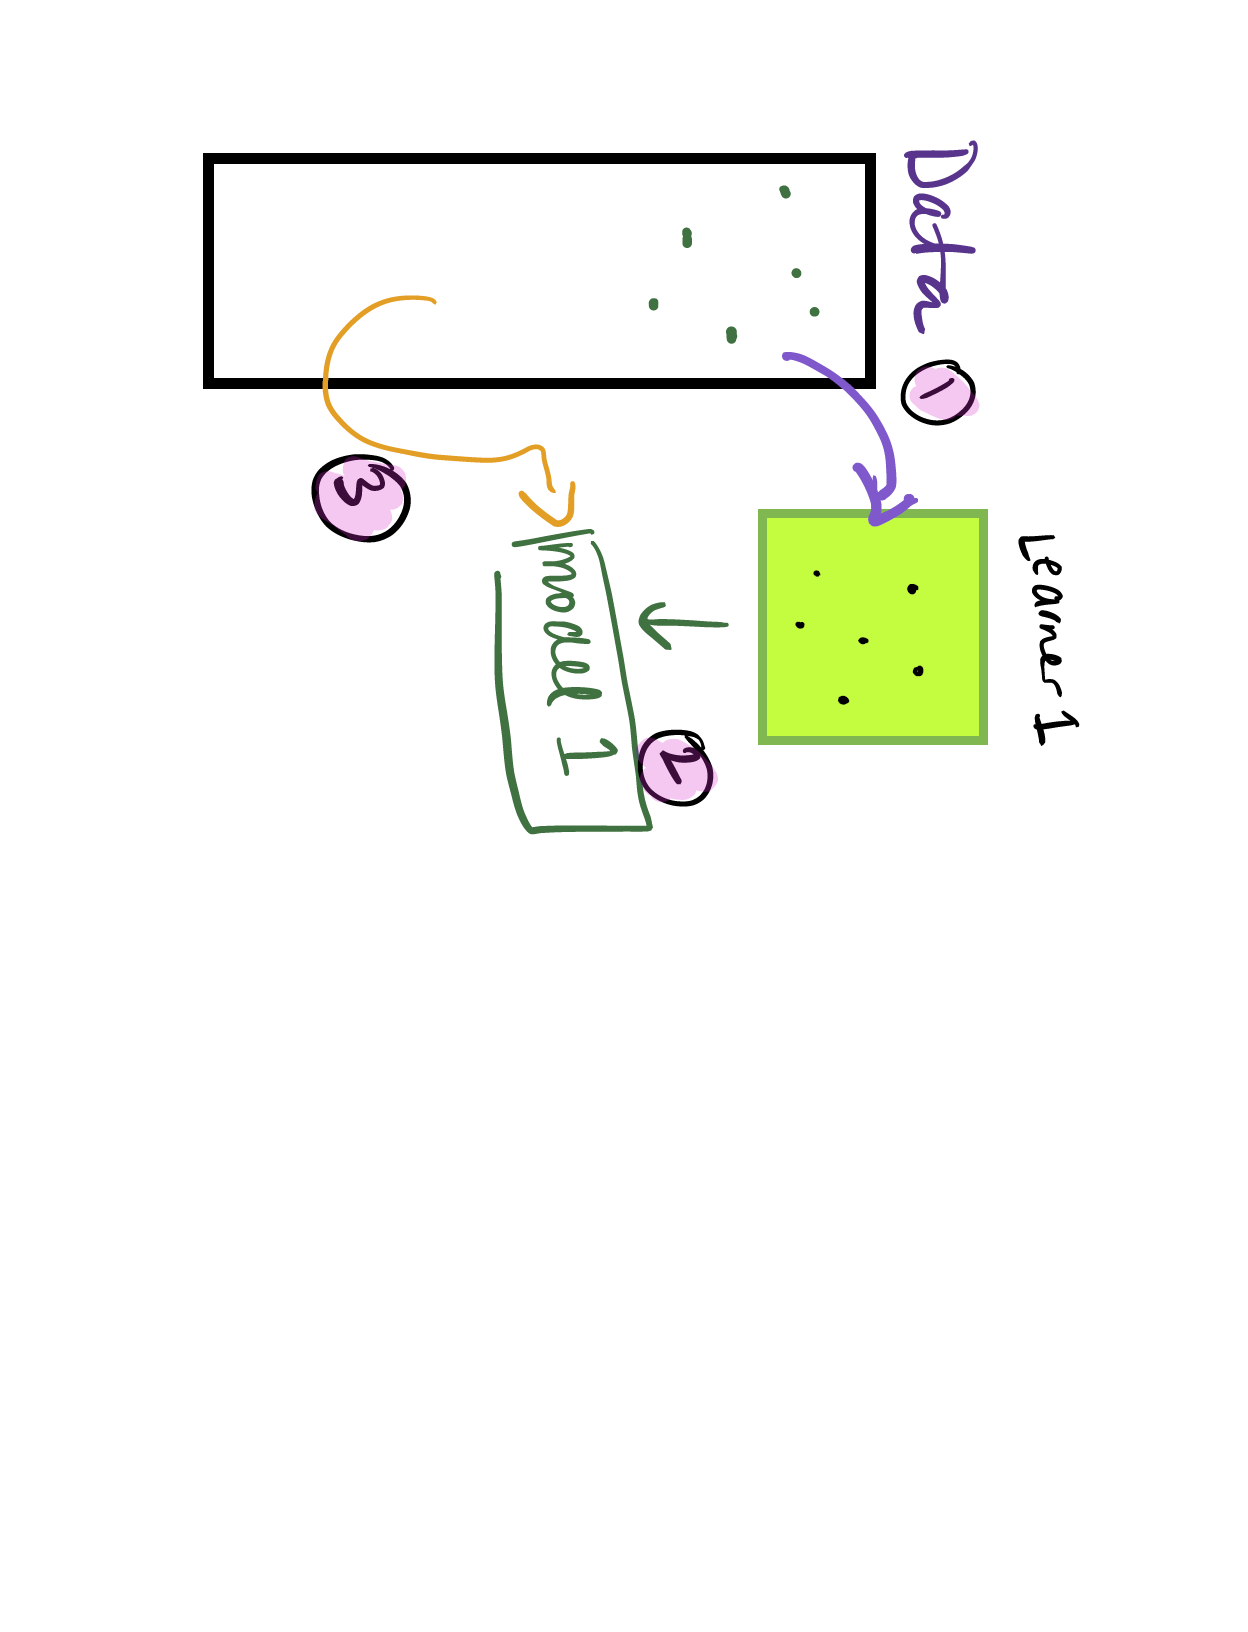 Data
1
Learner 1
2
model 1
3